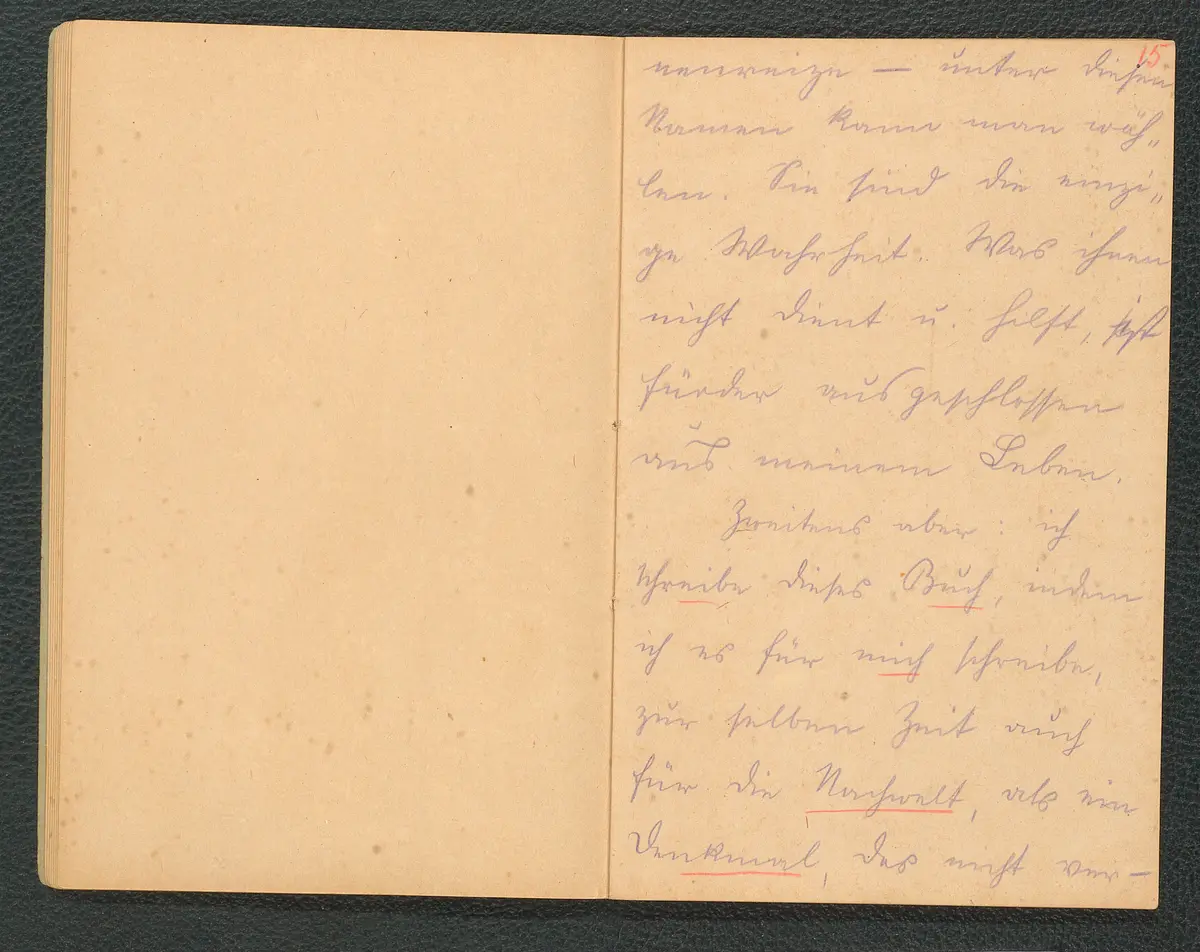 15
nenreize — unter diesen
Namen kann man wäh„
len. Sie sind die einzi„
ge Wahrheit. Was ihnen
nicht dient u. hilft, ist
fürder ausgeschlossen
aus meinem Leben.
Zweitens aber: ich
schreibe dieses Buch, indem
ich es für mich schreibe,
zur selben Zeit auch
für die Nachwelt, als ein
Denkmal, das nicht ver–